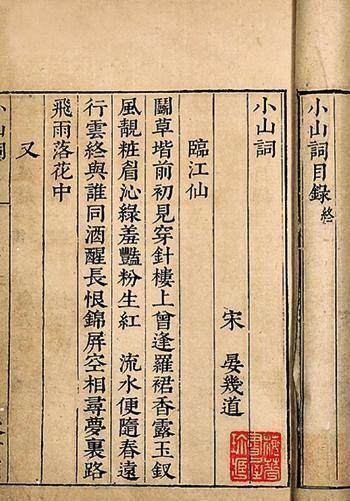 小山詞目錄終
小山詞
宋 晏幾道
臨江仙
鬭草堦前初見穿針樓上曾逢羅裙香露玉釵
風靚粧眉沁綠羞豔粉生紅 流水便隨春遠
行雲終與誰同酒醒長恨錦屏空相尋夢裏路
飛雨落花中
又
小山詞